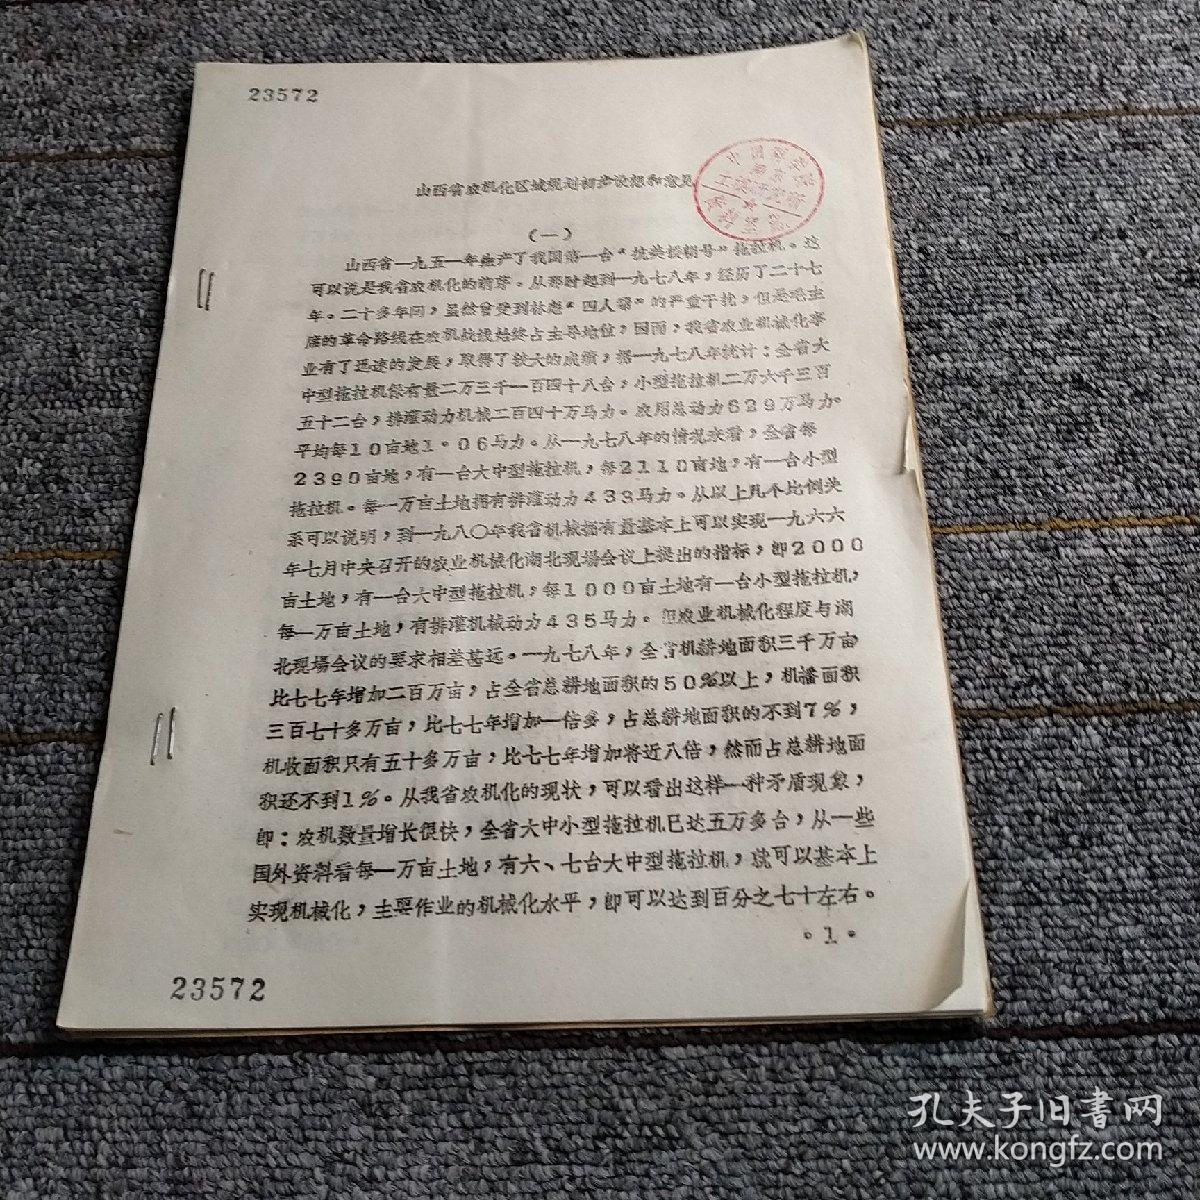 23572
山西省农机化区域规划初步设想和意见
(一)
山西省一九五一年生产了我国第一台“抗美援朝号”拖拉机。这
可以说是我省农机化的萌芽。从那时起到一九七八年，经历了二十七
年。二十多年间，虽然曾受到林彪“四人帮”的严重干扰，但是毛主
席的革命路线在农机战线始终占主导地位，因而，我省农业机械化事
业有了迅速的发展，取得了较大的成绩，据一九七八年统计：全省大
中型拖拉机保有量二万三千一百四十八台，小型拖拉机二万六千三百
五十二台，排灌动力机械二百四十万马力。农用总动力629万马力。
平均每10亩地1。06马力。从一九七八年的情况来看，全省每
2390亩地，有一台大中型拖拉机，每2110亩地，有一台小型
拖拉机。每一万亩土地拥有排灌动力433马力。从以上几个比例关
系可以说明，到一九八〇年我省机械拥有量基本上可以实现一九六六
年七月中央召开的农业机械化湖北现场会议上提出的指标，即2000
亩土地，有一台大中型拖拉机，每1000亩土地有一台小型拖拉机，
每一万亩土地，有排灌机械动力435马力。但农业机械化程度与湖
北现场会议的要求相差甚远。一九七八年，全省机耕地面积三千万亩
比七七年增加二百万亩，占全省总耕地面积的50%以上，机播面积
三百七十多万亩，比七七年增加一倍多，占总耕地面积的不到7%，
机收面积只有五十多万亩，比七七年增加将近八倍，然而占总耕地面
积还不到1%。从我省农机化的现状，可以看出这样一种矛盾现象，
即：农机数量增长很快，全省大中小型拖拉机已达五万多台，从一些
国外资料看每一万亩土地，有六、七台大中型拖拉机，就可以基本上
实现机械化，主要作业的机械化水平，即可以达到百分之七十左右。
。1。
23572
孔夫子旧书网
www.kongfz.com